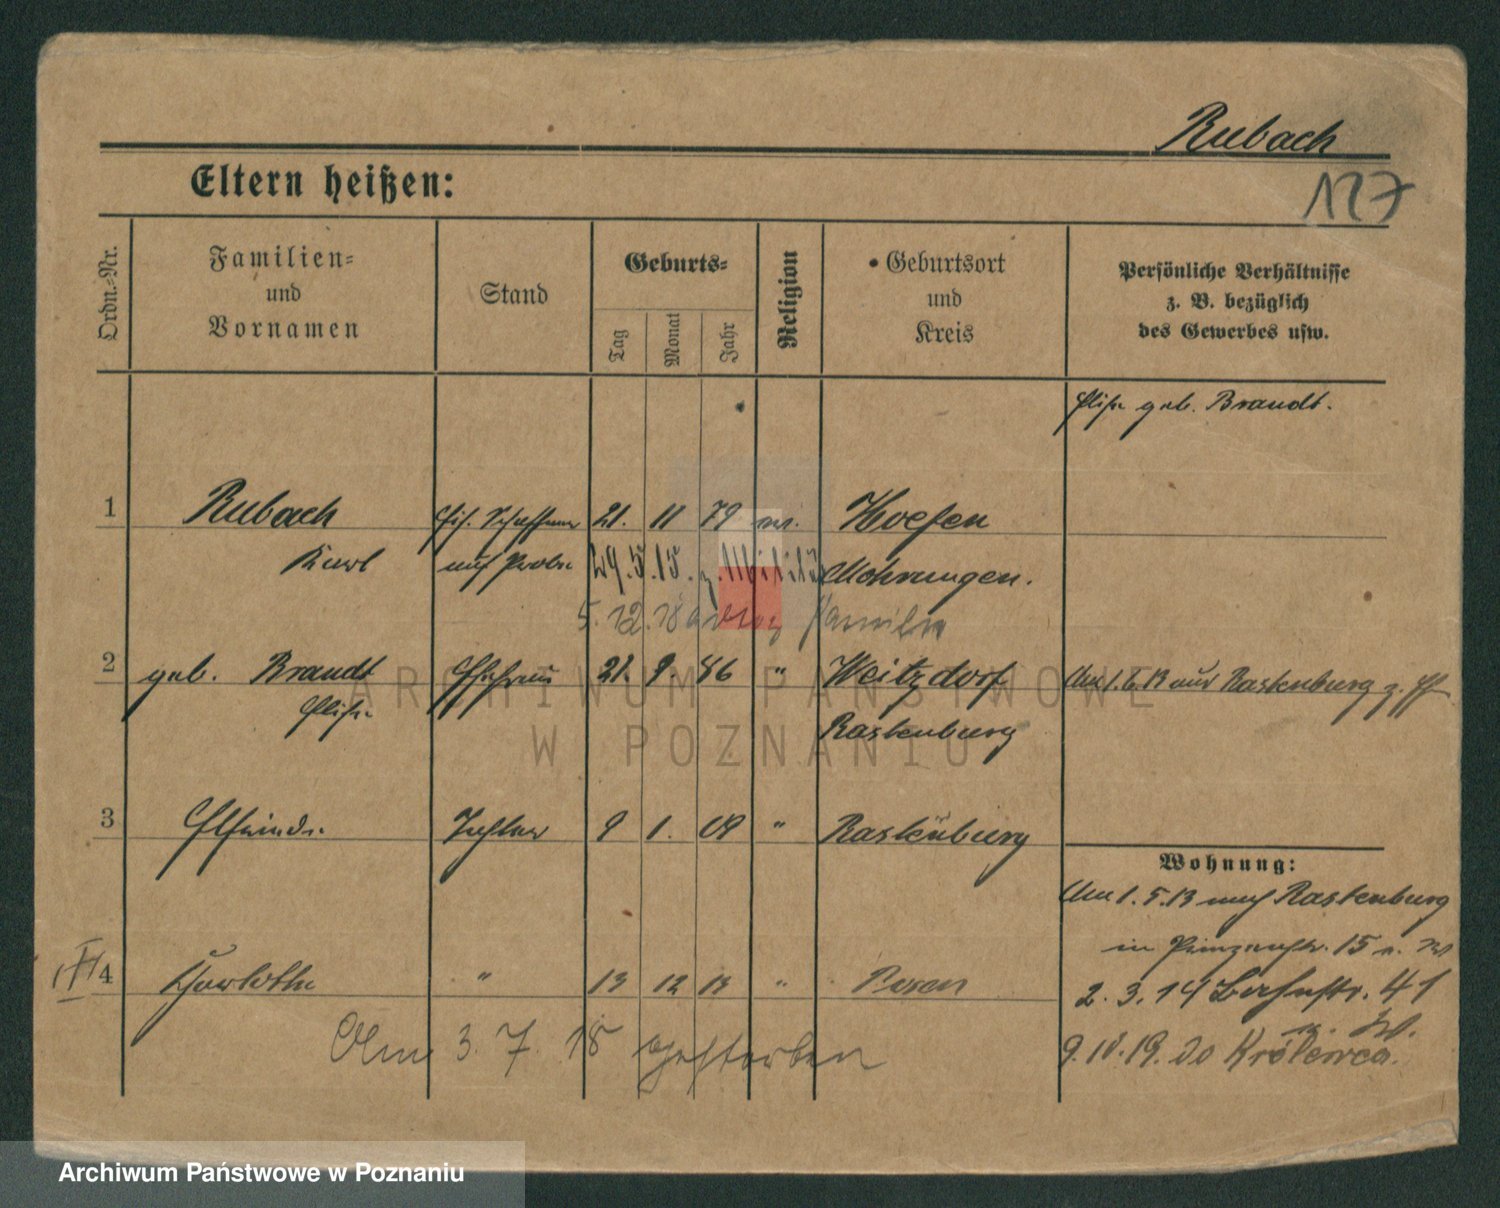 Rubach
127
Eltern heißen:
Ordn.-Nr.
Familien-
und
Vornamen
Stand
Geburts-
Tag
Monat
Jahr
Religion
Geburtsort
und
Kreis
Persönliche Verhältnisse
z. B. bezüglich
des Gewerbes usw.
Elise geb. Brandt.
1 Rubach Eis. Schaffner 21. 11 79 ev. Hoefen
Karl auf Probe 29.5.15. z. Militär Mohrungen.
5. 12. 18 Familie
2 geb. Brandt Ehefrau 21. 9. 86 " Weitzdorf Am 1.6.13 aus Rastenburg z.
Elise Rastenburg
3 Elfriede Tochter 9 1. 09 " Rastenburg
Wohnung:
Am 1.5.13 nach Rastenburg
in 15
4 Charlotte " 13 12 13 " Posen
2. 3. 14 Bahnstr. 41
Am 3. 7. 18 gestorben
9. IV. 19. do Królewca.
ARCHIWUM PAŃSTWOWE
W POZNANIU
Archiwum Państwowe w Poznaniu